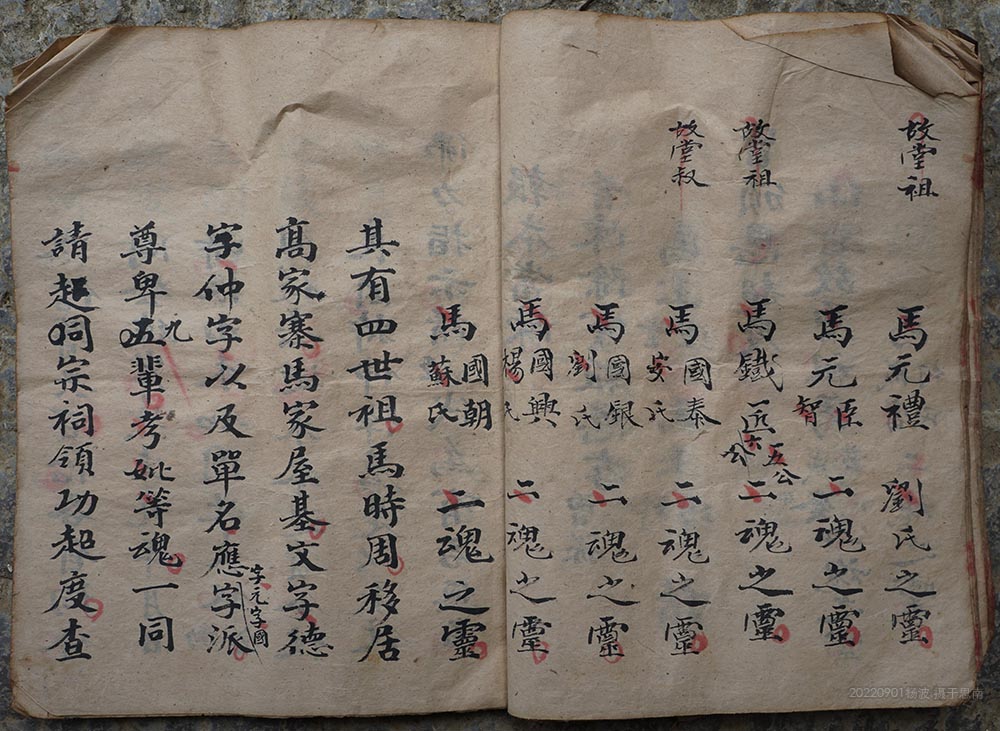 故堂祖 馬元禮 劉氏之靈
馬元臣智 二魂之靈
故堂祖 馬鐵匠五公六公 二魂之靈
故堂叔 馬國泰安氏 二魂之靈
馬國銀劉氏 二魂之靈
馬國興楊氏 二魂之靈
馬國朝蘇氏 二魂之靈
其有四世祖馬時周移居
高家寨馬家屋基文字德
字仲字以及單名應字字元字國派
尊卑五九輩考妣等魂一同
請起同宗祠領功超度查
20220901杨波 摄于思南